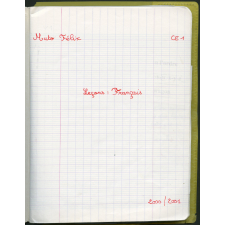 Félix CE1
Leçons : Français
2000/2001